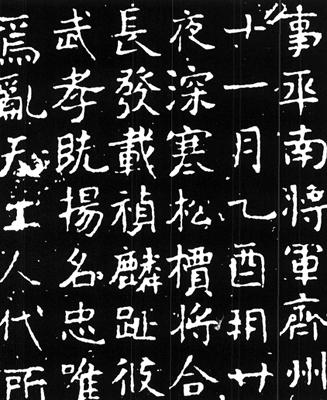 事平南將軍齊州
十一月乙酉朔廿
夜深寒松檟將合
長發載禎麟趾彼
武孝既揚名忠唯
焉亂天工人代所